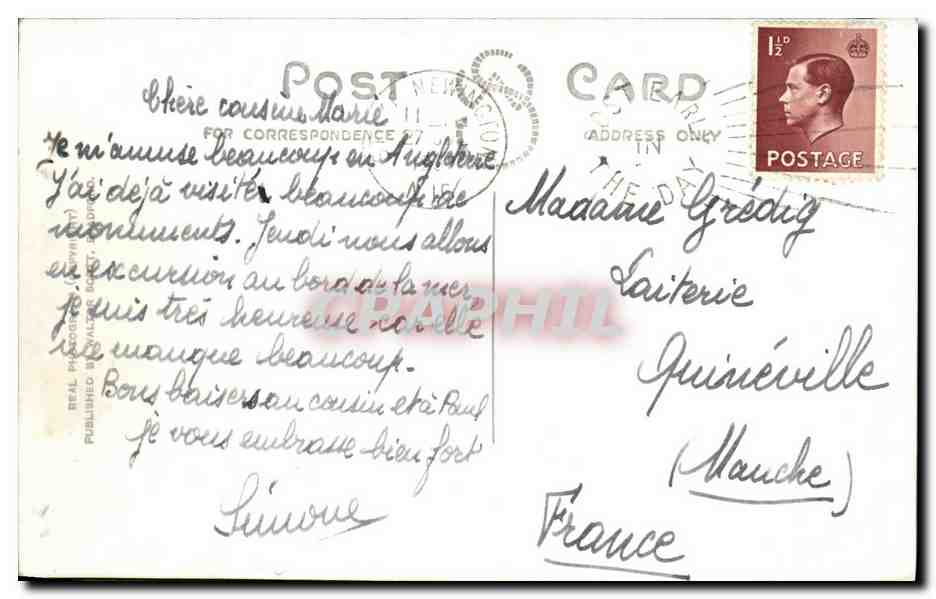 POST CARD
FOR CORRESPONDENCE
ADDRESS ONLY
1½D
POSTAGE
POST EARLY
IN
THE DAY
11
Chère cousine Marie
Je m'amuse beaucoup en Angleterre
J'ai dejà visité beaucoup de
monuments. Jeudi nous allons
en excursion au bord de la mer
je suis très heureuse car elle
me manque beaucoup.
Bons baisers au cousin et à Paul
je vous embrasse bien fort
Simone
Madame Grédig
Laiterie
Quinéville
(Manche)
France
REAL PHOTOGRAPH (COPYRIGHT)
PUBLISHED BY WALTER SCOTT, BRADFORD.
CPAPHIL